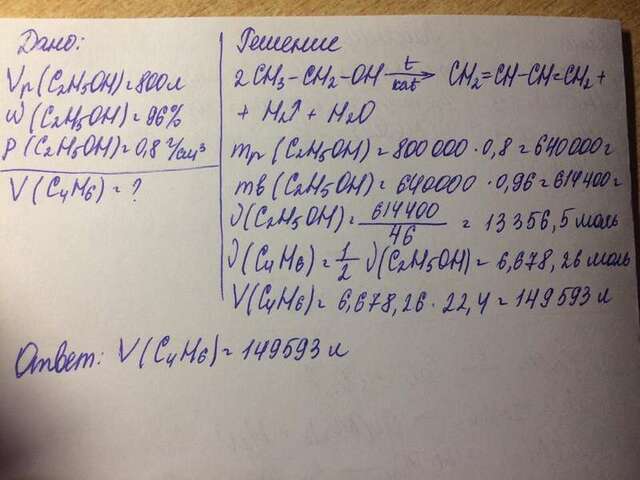 Дано:
Vр(C2H5OH)=800л
ω(C2H5OH)=96%
ρ(C2H5OH)=0,8 г/см³
V(C4H6)=?
Решение
2CH3-CH2-OH t kat → CH2=CH-CH=CH2 +
+ H2↑ + H2O
mр(C2H5OH)=800000·0,8=640000г
mв(C2H5OH)=640000·0,96=614400г
ν(C2H5OH)=614400/46=13356,5моль
ν(C4H6)=1/2 ν(C2H5OH)=6,678,26моль
V(C4H6)=6,678,26·22,4=149593л
Ответ: V(C4H6)=149593л